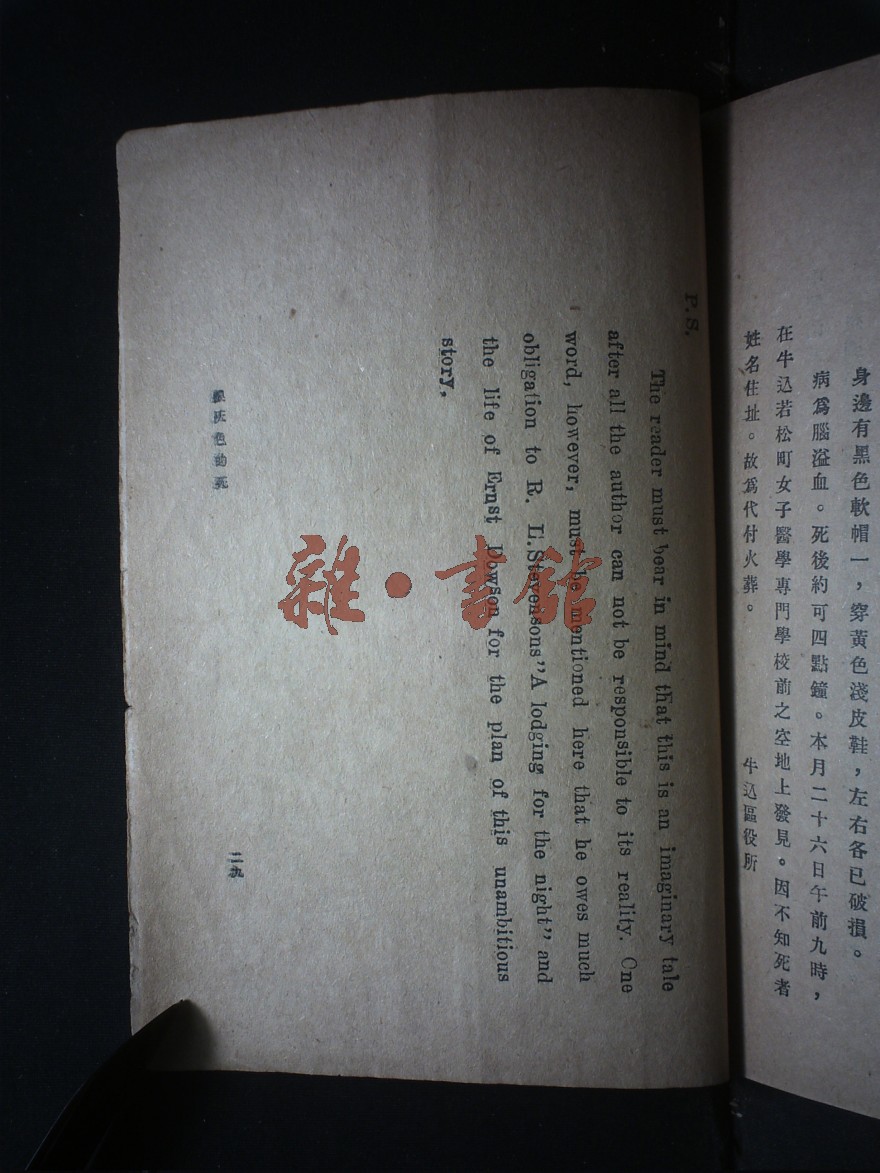 身邊有黑色軟帽一，穿黃色淺皮鞋，左右各已破損。
病爲腦溢血。死後約可四點鐘。本月二十六日午前九時，
在牛込若松町女子醫學專門學校前之空地上發見。因不知死者
姓名住址。故爲代付火葬。
牛込區役所
P.S.
The reader must bear in mind that this is an imaginary tale
after all the author can not be responsible to its reality. One
word, however, must be mentioned here that he owes much
obligation to R. L. Stevensons "A lodging for the night" and
the life of Ernst Dowson for the plan of this unambitious
story,
銀灰色的死
二九
雜·書館